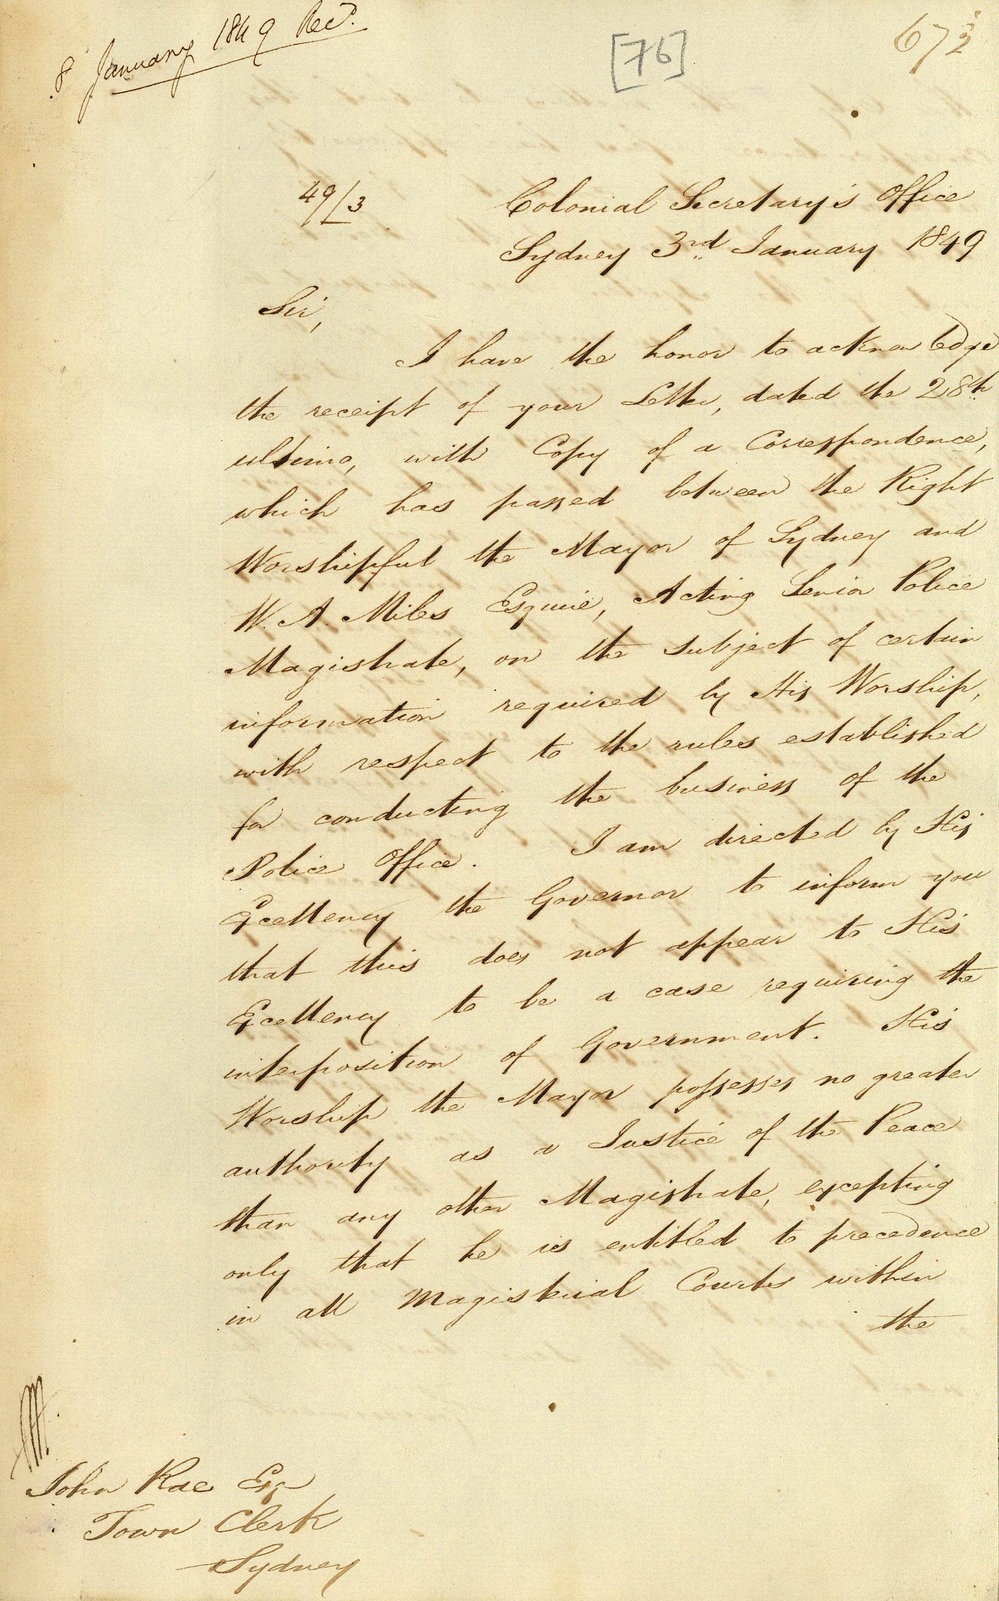 8 January 1849 Recd.
[76]
67½
49/3
Colonial Secretary's Office
Sydney 3rd January 1849
Sir,
I have the honor to acknowledge
the receipt of your Letter, dated the 28th
ultimo, with Copy of a Correspondence,
which has passed between the Right
Worshipful the Mayor of Sydney and
W. A. Miles Esquire, Acting Senior Police
Magistrate, on the subject of certain
information required by His Worship,
with respect to the rules established
for conducting the business of the
Police Office. I am directed by His
Excellency the Governor to inform you
that this does not appear to His
Excellency to be a case requiring the
interposition of Government. His
Worship the Mayor possesses no greater
authority as a Justice of the Peace
than any other Magistrate, excepting
only that he is entitled to precedence
in all Magisterial Courts within
the
John Rae Esq
Town Clerk
Sydney